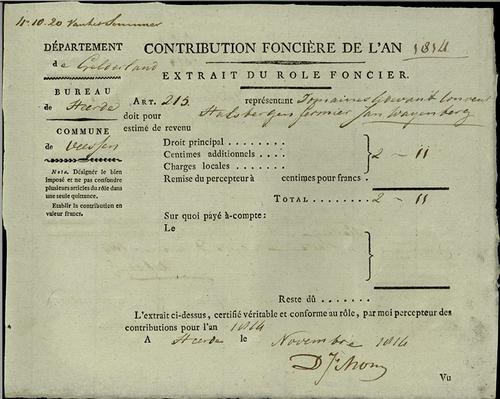 DÉPARTEMENT
de Gelderland
BUREAU
de Heerde
COMMUNE
de Veessen
Nota. Désigner le bien
imposé et ne pas confondre
plusieurs articles du rôle dans
une seule quittance.
Etablir la contribution en
valeur francs.
CONTRIBUTION FONCIÈRE DE L'AN 1814
EXTRAIT DU ROLE FONCIER.
ART. 215. représentant Domaines convent
doit pour Hulsbergen fermier Jan Wagenberg
estimé de revenu
Droit principal . . . . . . . .
Centimes additionnels . . . . 2 - 11
Charges locales . . . . . . .
Remise du percepteur à centimes pour francs.
TOTAL . . . . . . . . 2 - 11
Sur quoi payé à-compte:
Le
Reste dû . . . . . . .
L'extrait ci-dessus, certifié véritable et conforme au rôle, par moi percepteur des
contributions pour l'an 1814
A Heerde le Novembre 1814
Vu